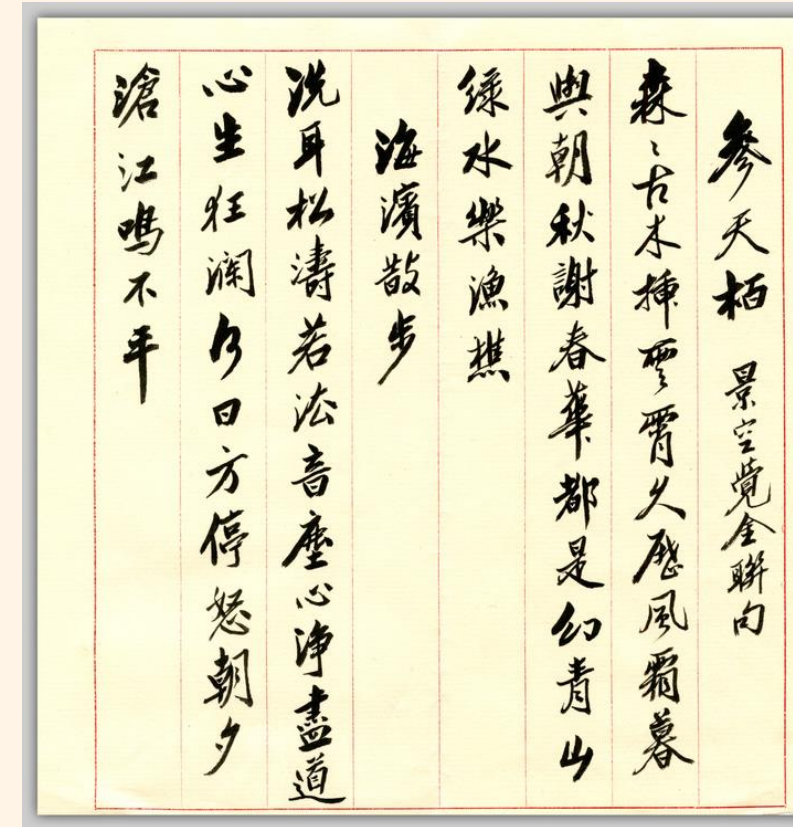 參天栢 景空覺全聯句
森〻古木揷雲霄久歷風霜暮
與朝秋謝春華都是幻青山
綠水樂漁樵
海濱散步
洗耳松濤若法音塵心淨盡道
心生狂瀾何日方停怒朝夕
滄江鳴不平